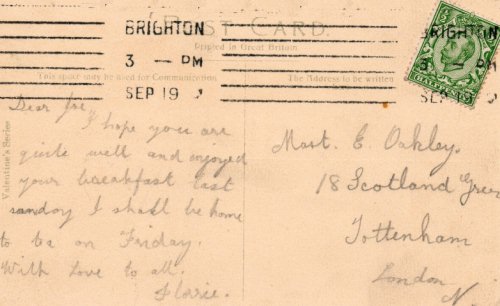 BRIGHTON
3 - PM
SEP 19
BRIGHTON
3 - PM
SEP 19
POST CARD.
Printed in Great Britain
This space may be used for Communication
The Address to be written
Valentine's Series
Dear Joe,
I hope you are
quite well and enjoyed
your breakfast last
sunday I shall be home
to tea on Friday.
With love to all.
Florrie.
Mast. E. Oakley.
18 Scotland Green
Tottenham
London
N.